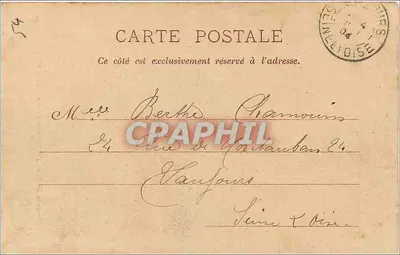 54
CARTE POSTALE
Ce côté est exclusivement réservé à l'adresse.
URS
4
04
SEINE ET OISE
Melle Berthe Chamouin
CPAPHIL
24 Rue de Montauban 24
Vaujours
Seine & Oise